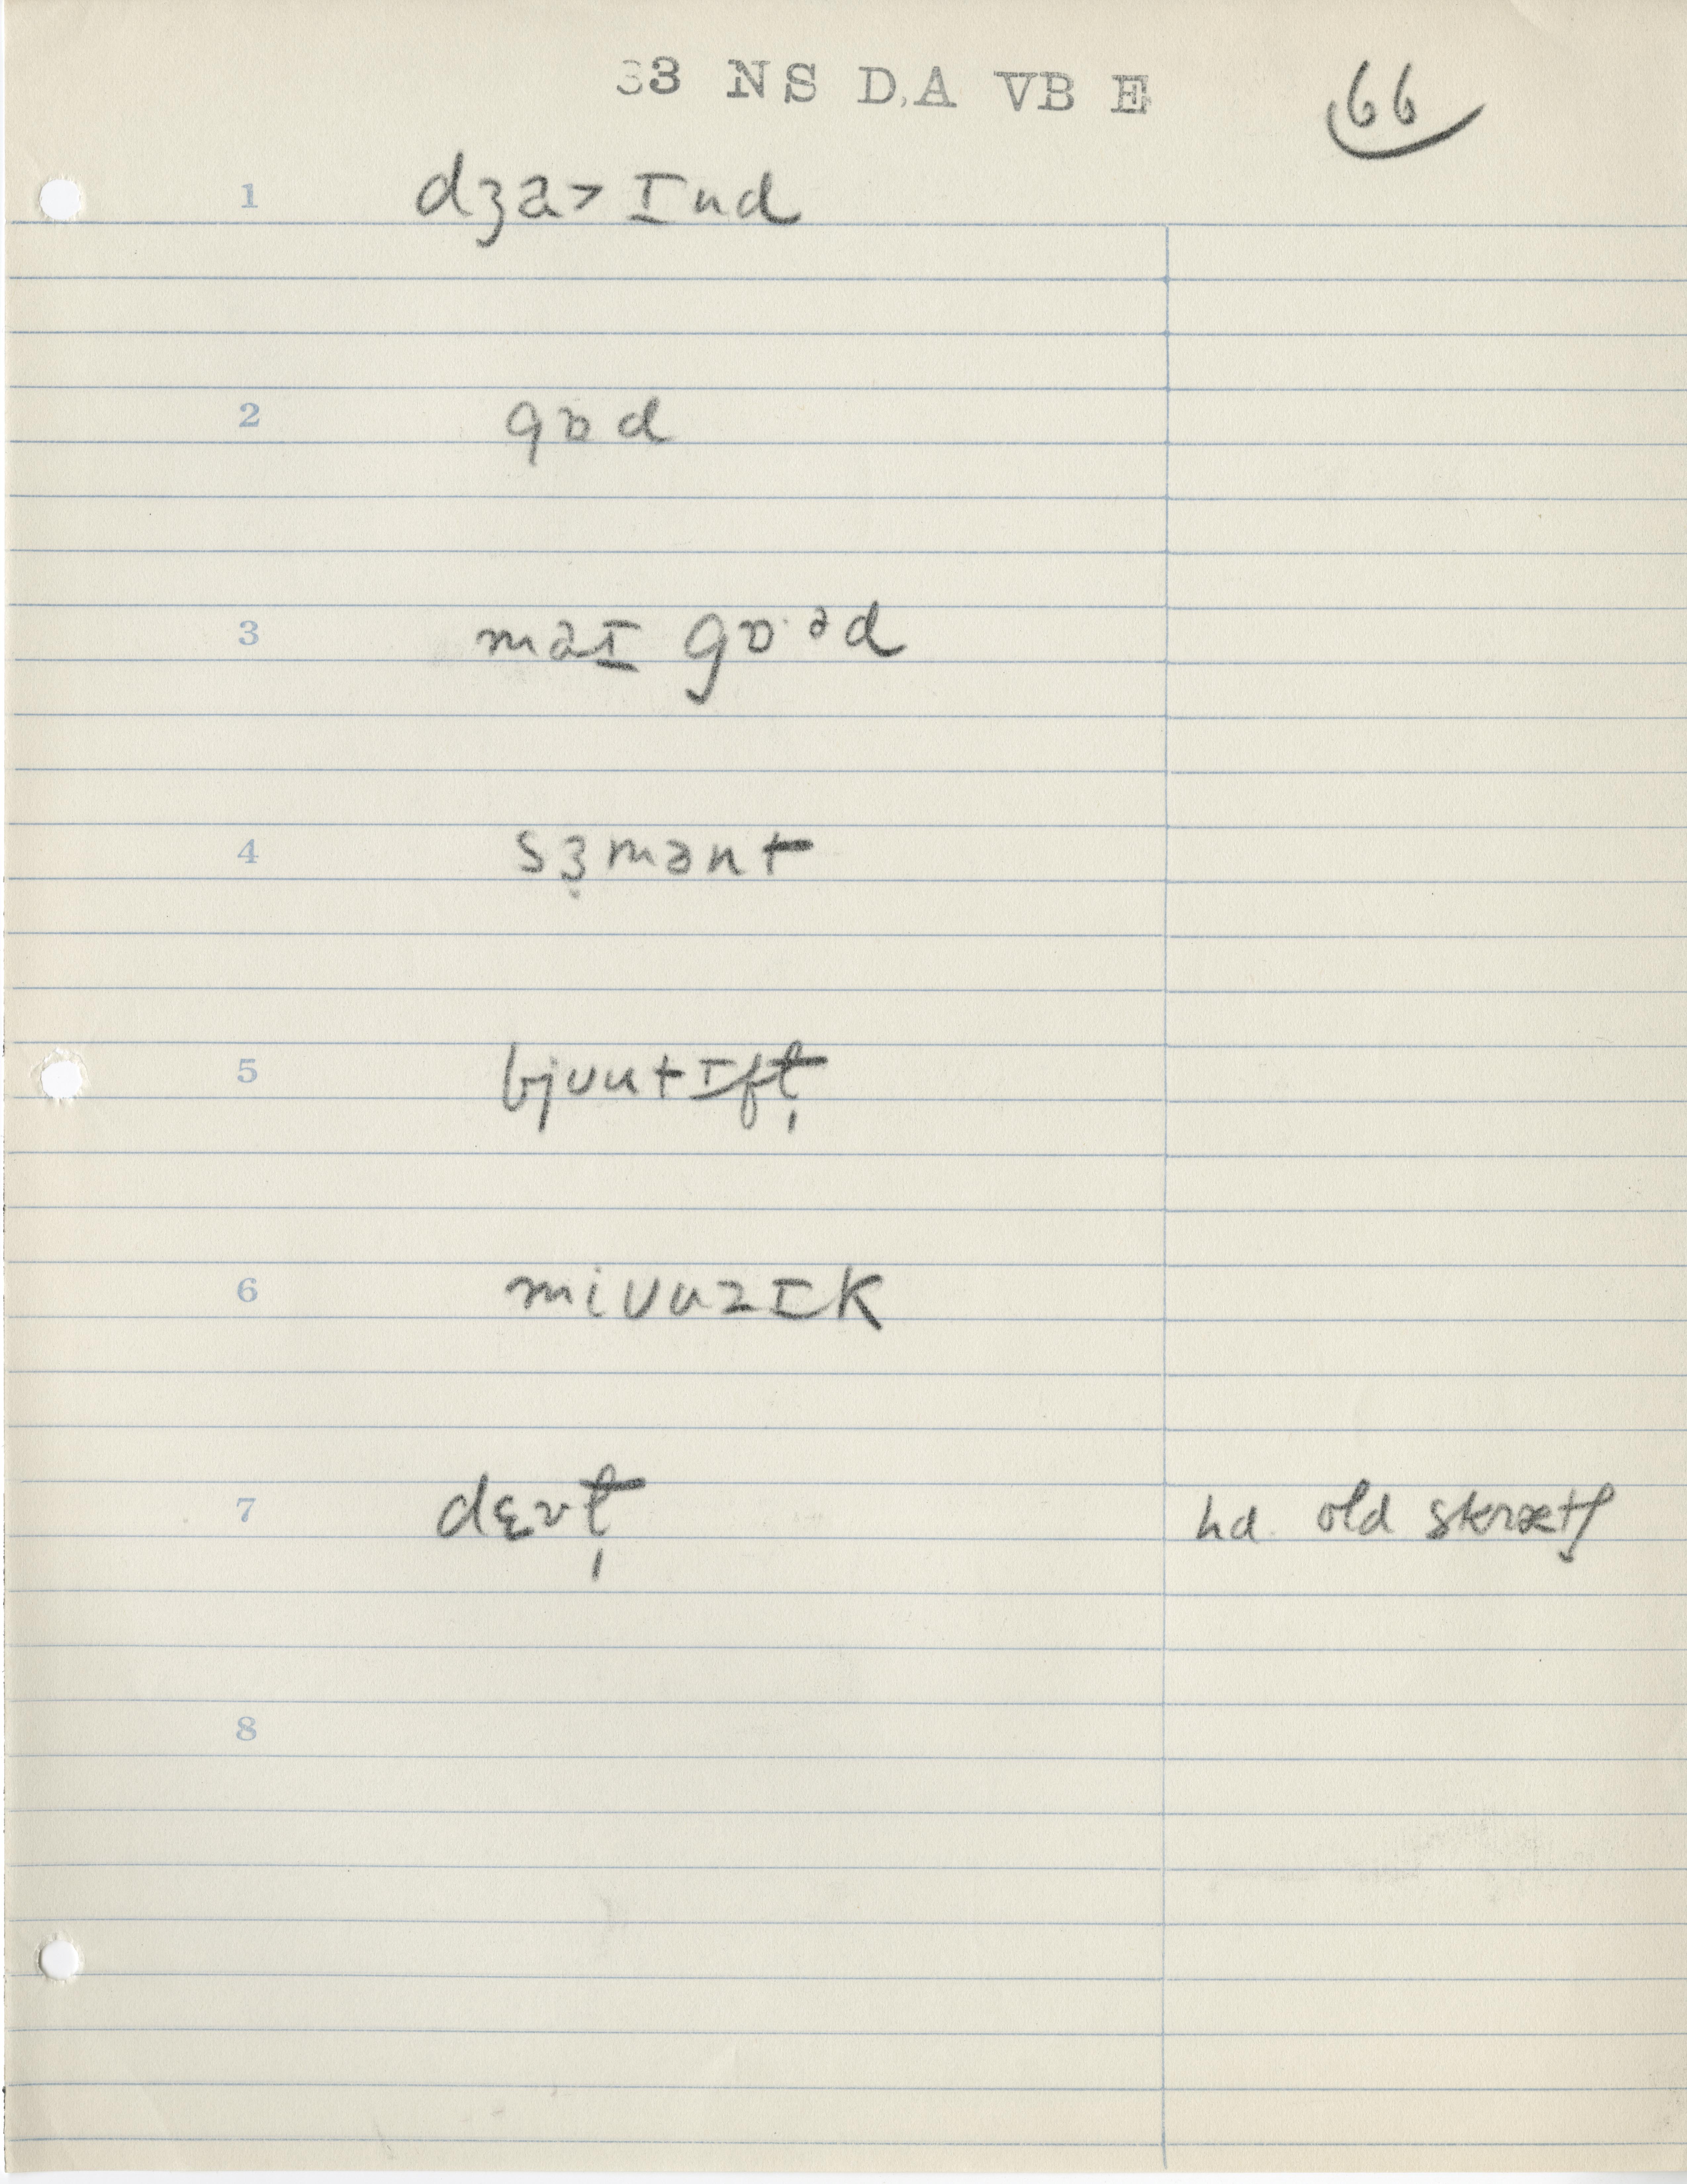 33 NS D,A VB E 66
1 dʒa˃ɪnd
2 gɒd
3 maɪ gɒ·ᵊd
4 sɜ̣mənt
5 bjʊutɪft̩
6 miʊuzɪk
7 dɛvt̩ hd. old skrætʃ
8